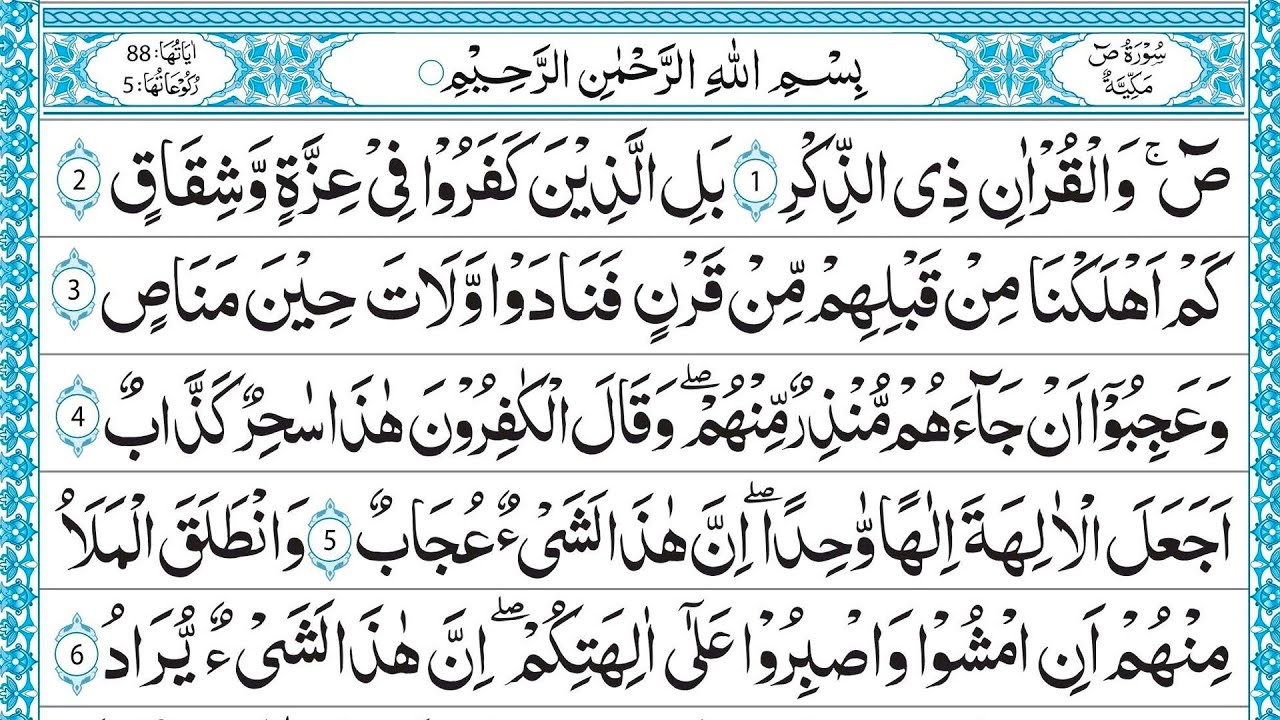 سُوْرَةُ صٓ
مَكِّيَّةٌ
بِسْمِ اللّٰهِ الرَّحْمٰنِ الرَّحِيْمِ
اٰيَاتُهَا: 88
رُكُوْعَاتُهَا: 5
صٓ ۚ وَالْقُرْاٰنِ ذِى الذِّكْرِ 1 بَلِ الَّذِيْنَ كَفَرُوْا فِىْ عِزَّةٍ وَّشِقَاقٍ 2
كَمْ اَهْلَكْنَا مِنْ قَبْلِهِمْ مِّنْ قَرْنٍ فَنَادَوْا وَّلَاتَ حِيْنَ مَنَاصٍ 3
وَعَجِبُوْۤا اَنْ جَآءَهُمْ مُّنْذِرٌ مِّنْهُمْ ۖ وَقَالَ الْكٰفِرُوْنَ هٰذَا سٰحِرٌ كَذَّابٌ 4
اَجَعَلَ الْاٰلِهَةَ اِلٰهًا وّٰحِدًا ۖ اِنَّ هٰذَا لَشَىْءٌ عُجَابٌ 5 وَانْطَلَقَ الْمَلَاُ
مِنْهُمْ اَنِ امْشُوْا وَاصْبِرُوْا عَلٰٓى اٰلِهَتِكُمْ ۖ اِنَّ هٰذَا لَشَىْءٌ يُّرَادُ 6